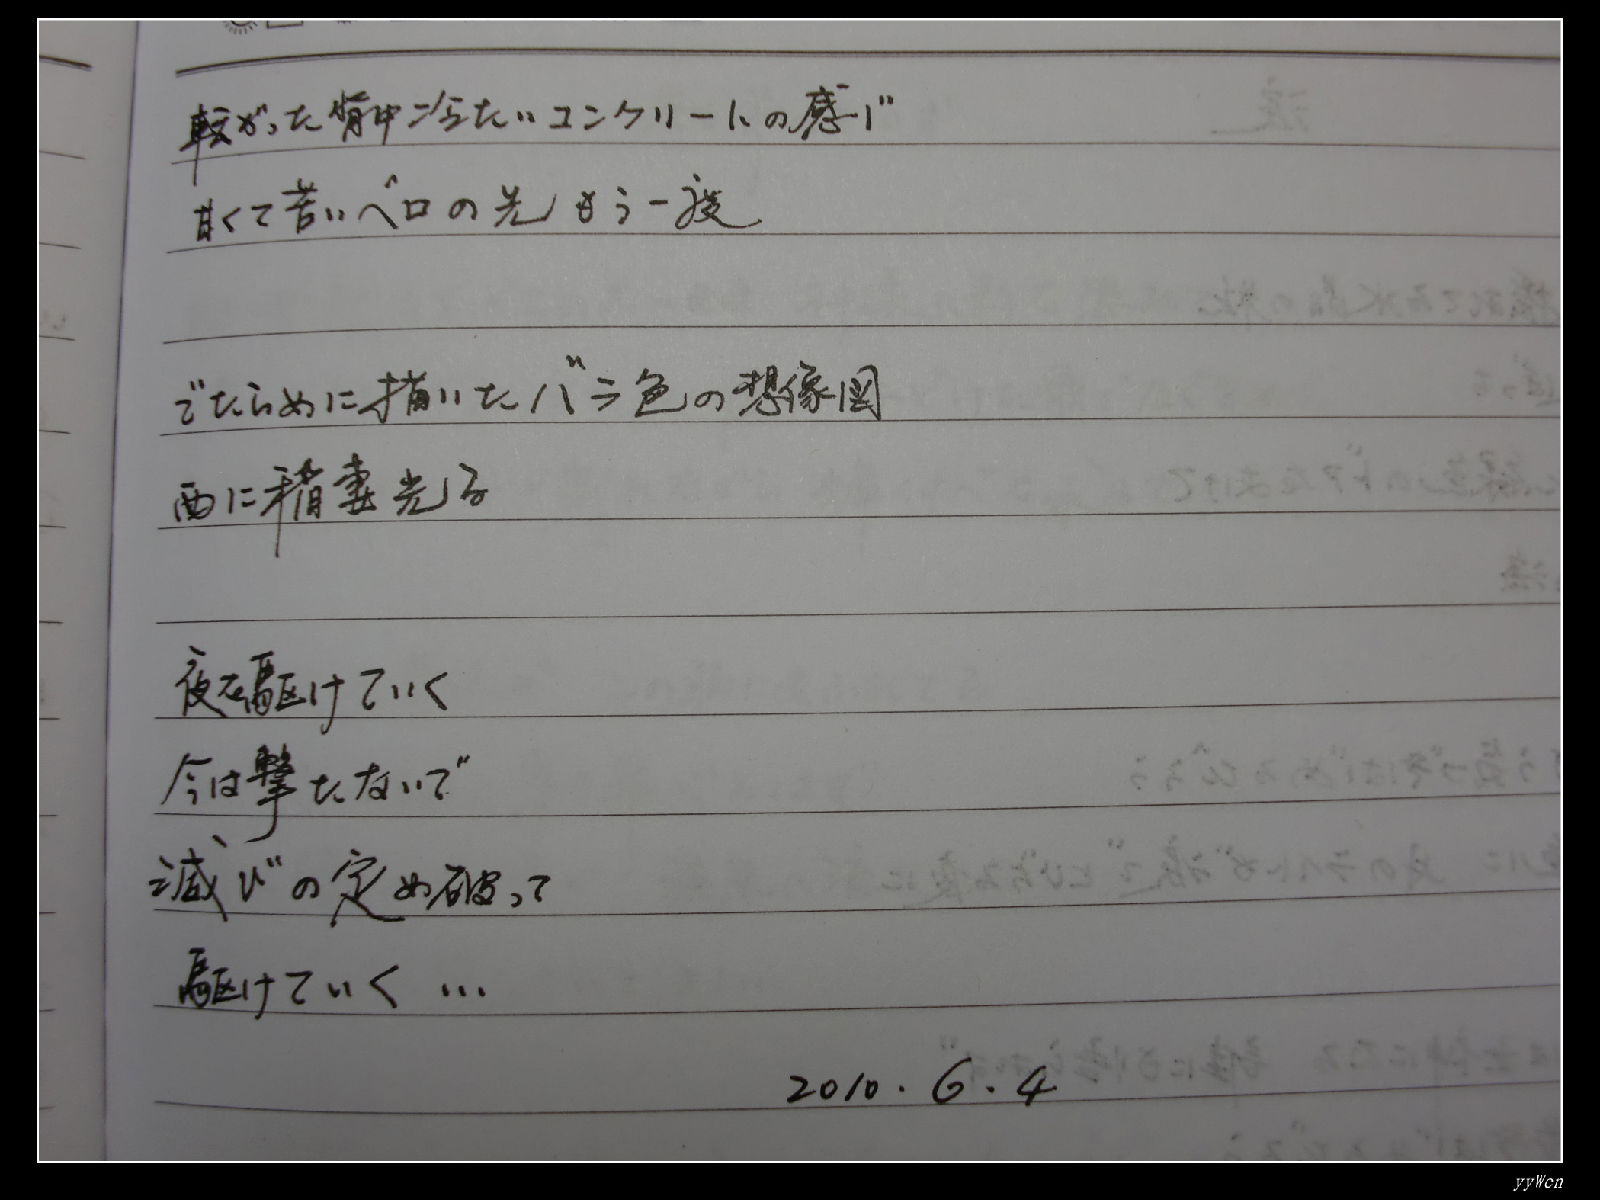 転がった背中 冷たいコンクリートの感じ
甘くて苦いベロの先 もう一度
でたらめに描いたバラ色の想像図
西に稲妻光る
夜を駆けていく
今は撃たないで
滅びの定め破って
駆けていく …
2010.6.4
yyWon